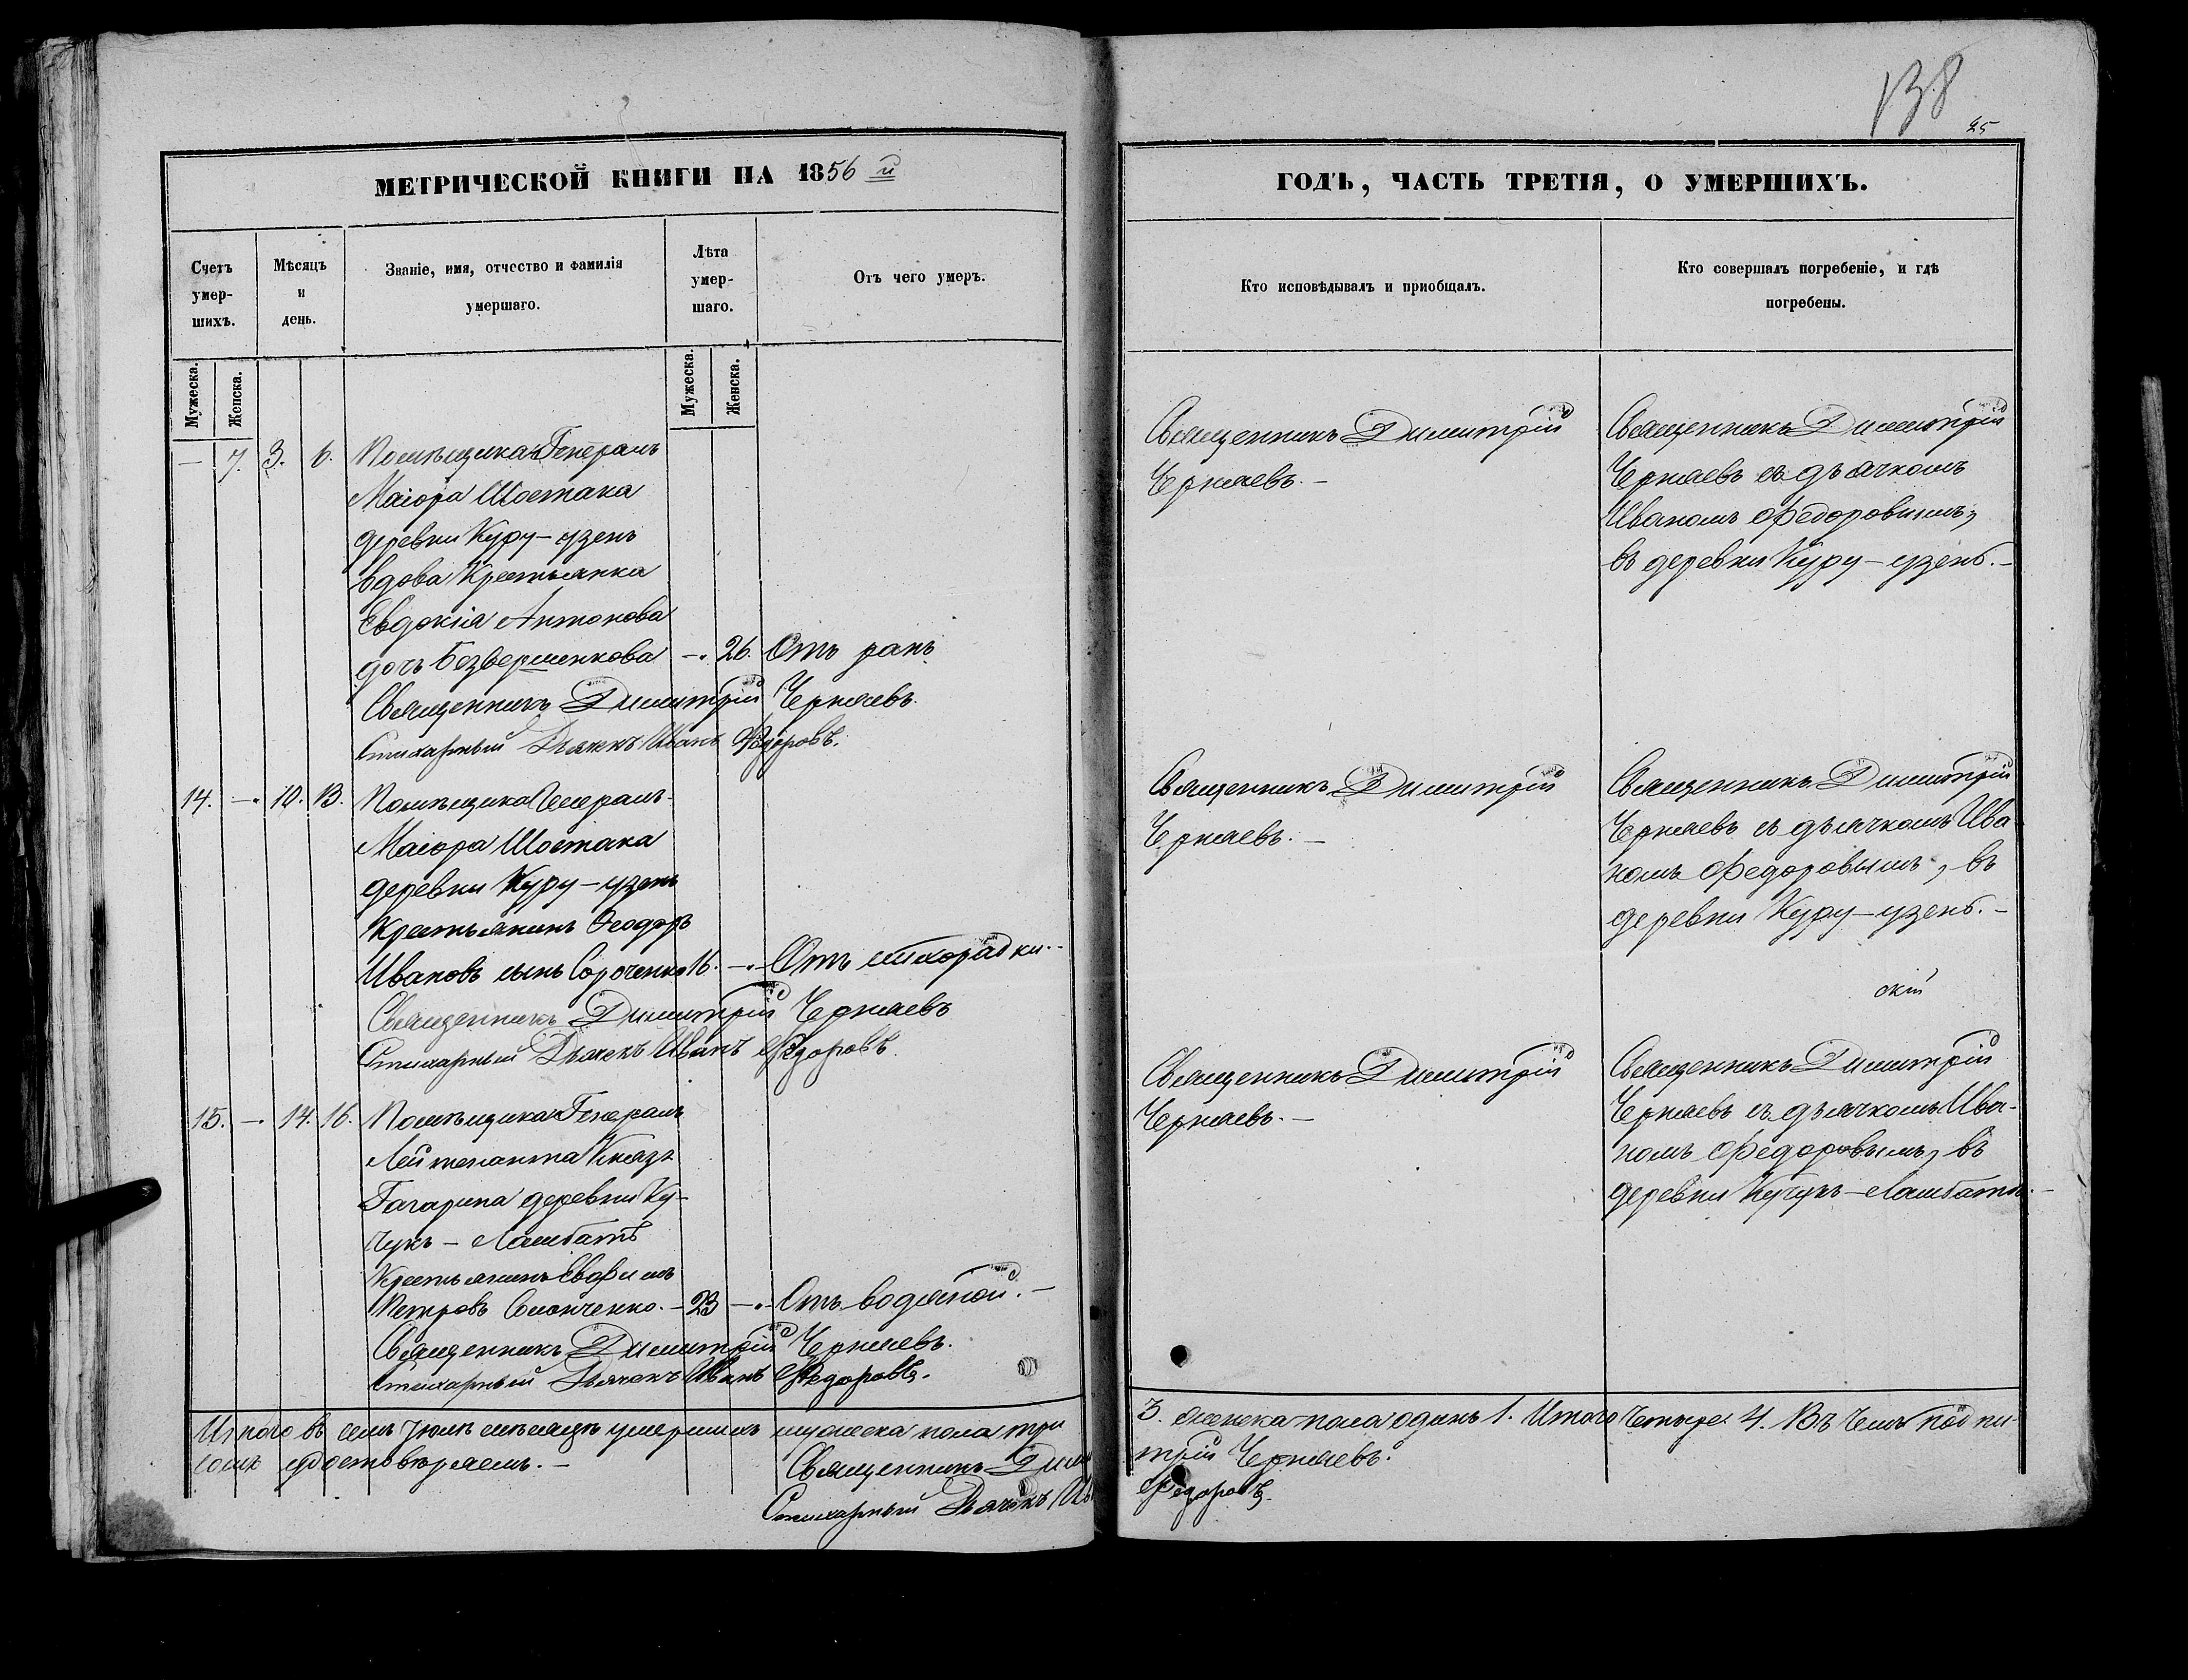 138
25
МЕТРИЧЕСКОЙ КНИГИ НА 1856 й
ГОДЪ, ЧАСТЬ ТРЕТІЯ, О УМЕРШИХЪ.
Счетъ умер-шихъ.
Мѣсяцъ и день.
Званіе, имя, отчество и фамилія умершаго.
Лѣта умер-шаго.
Отъ чего умеръ.
Кто исповѣдывалъ и приобщалъ.
Кто совершалъ погребеніе, и гдѣ погребены.
Мужеска. Женска.
Мужеска. Женска.
— 7. 3. 6. Помѣщика Генералъ
Маіора Шостака
деревни Куру-узень
вдова Крестьянка
Евдокія Антонова
дочь Безвершенкова — 26. Отъ ранъ
Священникъ Димитрій Черняевъ.
Стихарный Дьячекъ Иванъ Федоровъ.
Священникъ Димитрій
Черняевъ. —
Священникъ Димитрій
Черняевъ съ дьячкомъ
Иваномъ Федоровымъ,
въ деревни Куру-узень. —
14. — 10. 13. Помѣщика Генералъ-
Маіора Шостака
деревни Куру-узень
Крестьянинъ Ѳеодоръ
Ивановъ сынъ Сороченко 16. — Отъ лихорадки. —
Священникъ Димитрій Черняевъ
Стихарный Дьячекъ Иванъ Федоровъ.
Священникъ Димитрій
Черняевъ. —
Священникъ Димитрій
Черняевъ съ дьячкомъ Ива
номъ Федоровымъ, въ
деревни Куру-узень. —
15. — 14. 16. Помѣщика Генералъ
Лейтенанта Князя
Гагарина деревни Ку-
чукъ-Ламбатъ
Крестьянинъ Евфимъ
Петровъ — 23 — Отъ водяной. —
Священникъ Димитрій Черняевъ.
Стихарный Дьячекъ Иванъ Федоровъ.
Священникъ Димитрій
Черняевъ. —
Священникъ Димитрій
Черняевъ съ дьячкомъ Ива-
номъ Федоровымъ, въ
деревни Кучукъ-Ламбатъ. —
Итого въ семъ Іюлѣ мѣсяцѣ умершихъ мужеска пола три 3. женска пола одинъ 1. Итого Четыре 4. Въ чемъ подпи-
сомъ удостовѣряемъ. —
Священникъ Димитрій Черняевъ.
Стихарный Дьячекъ Ив Федоровъ.